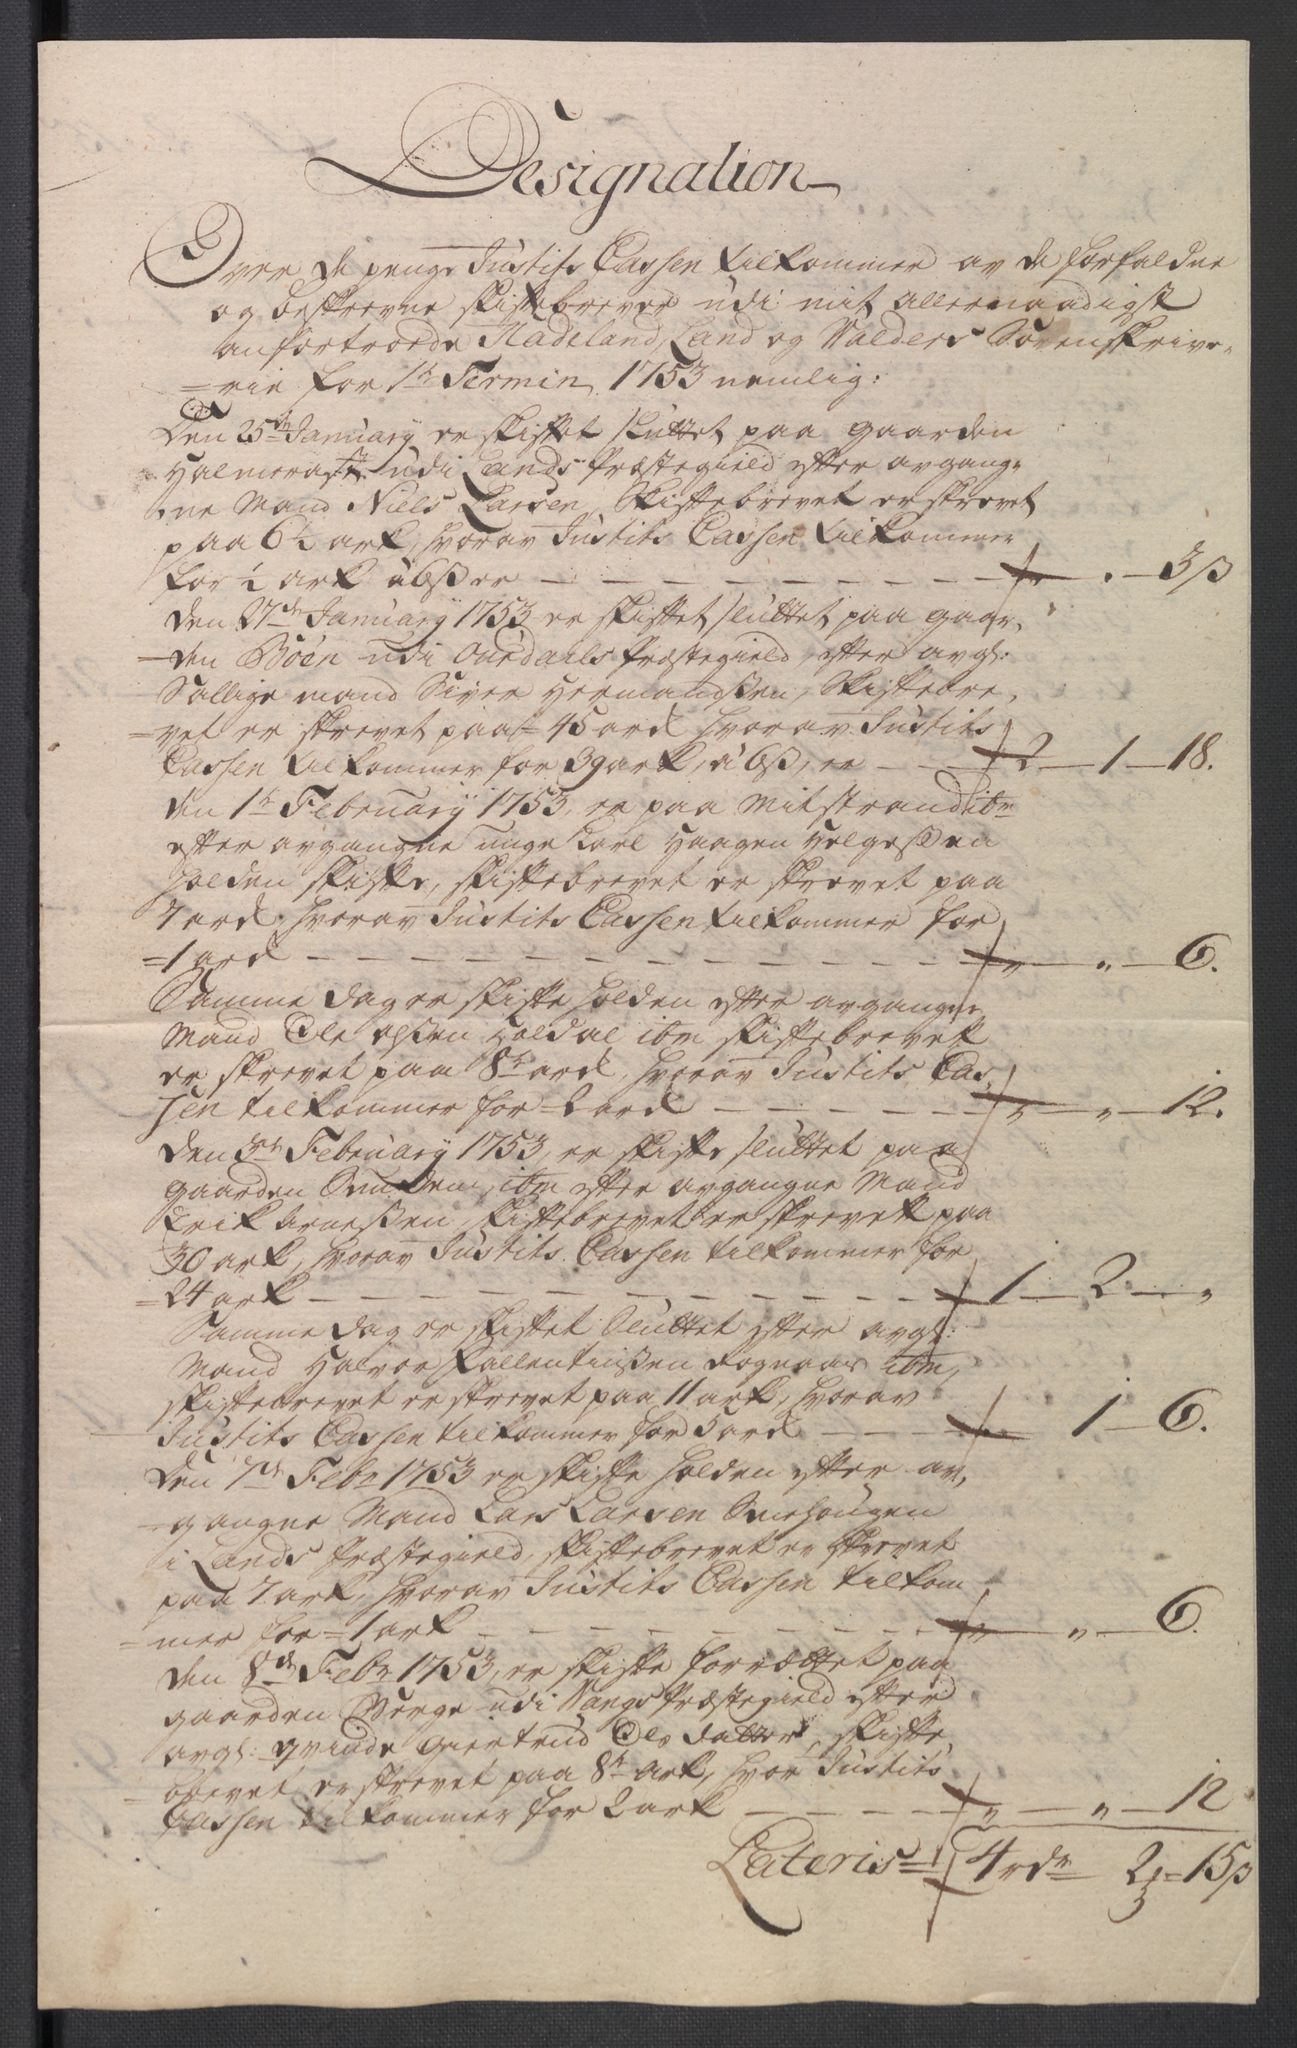 Designation
Over de penge Justits Cassen tilkommer av de forfaldne
og beskrevne skiftebrever udi mit allernaadigst
anfortroede Hadeland, Land og Valders Sorenskrive-
=rie for 1te Termin 1753 nemlig:
Den 25de January er skiftet sluttet paa gaarden
Halmerast udi Lands Præstegield efter avgang-
ne Mand Niels Larsen, Skiftebrevet er skrevet
paa 6½ ark, hvorav Justits Cassen tilkommer
for ½ ark à 6 ß er — — — " — " — 3 ß
Den 27de January 1753 er skiftet sluttet paa gaar-
=den Böen udi Ourdahls Præstegield, efter avg:
Sallige mand Siver Hermandßen, Skiftebre-
=vet er skrevet paa = 45 ark hvorav Justits
Cassen tilkommer for 39 ark, à 6 ß, er — 2 — 1 — 18.
den 1te February 1753, er paa Mitstrand ibm
efter avgangne unge Karl Haagen Helgeßen
holden skifte, skiftebrevet er skrevet paa
7 ark, hvorav Justits Cassen tilkommer for
=1 ark — — — " — " — 6.
Samme dag er skifte holden efter avgangne
Mand Ole Olßen Holdal ibm skiftebrevet
er skrevet paa 8te ark, hvorav Justits Cas-
sen tilkommer for = 2 ark — — — " — " — 12.
Den 3de February 1753, er skifte sluttet paa
gaarden ibm efter avgangne Mand
Erik Arneßen, skiftebrevet er skrevet paa
30 ark, hvorav Justits Cassen tilkommer for
=24 ark — — — 1 — 2 — "
Samme dag er skiftet Sluttet efter avg:
Mand Halvor ibm,
skiftebrevet er skrevet paa 11 ark, hvorav
Justits Cassen tilkommer for 5 ark — — " 1 — 6.
Den 7de Febr 1753 er skifte holden efter av-
=gangne Mand Lars Larsen
i Lands Præstegield, skiftebrevet er skrevet
paa 7 ark, hvorav Justits Cassen tilkom-
=mer for = 1 ark — — — " — " — 6.
den 8de Febr 1753, er skifte forrættet paa
gaarden Berge udi Vangs Præstegield efter
avg: qvinde Giertrud Ols datter, skifte-
=brevet er skrevet paa 8te ark, hvor Justits
Cassen tilkommer for 2 ark — — — " — " — 12
Lateris = 4 rdr 2 = 15 ß